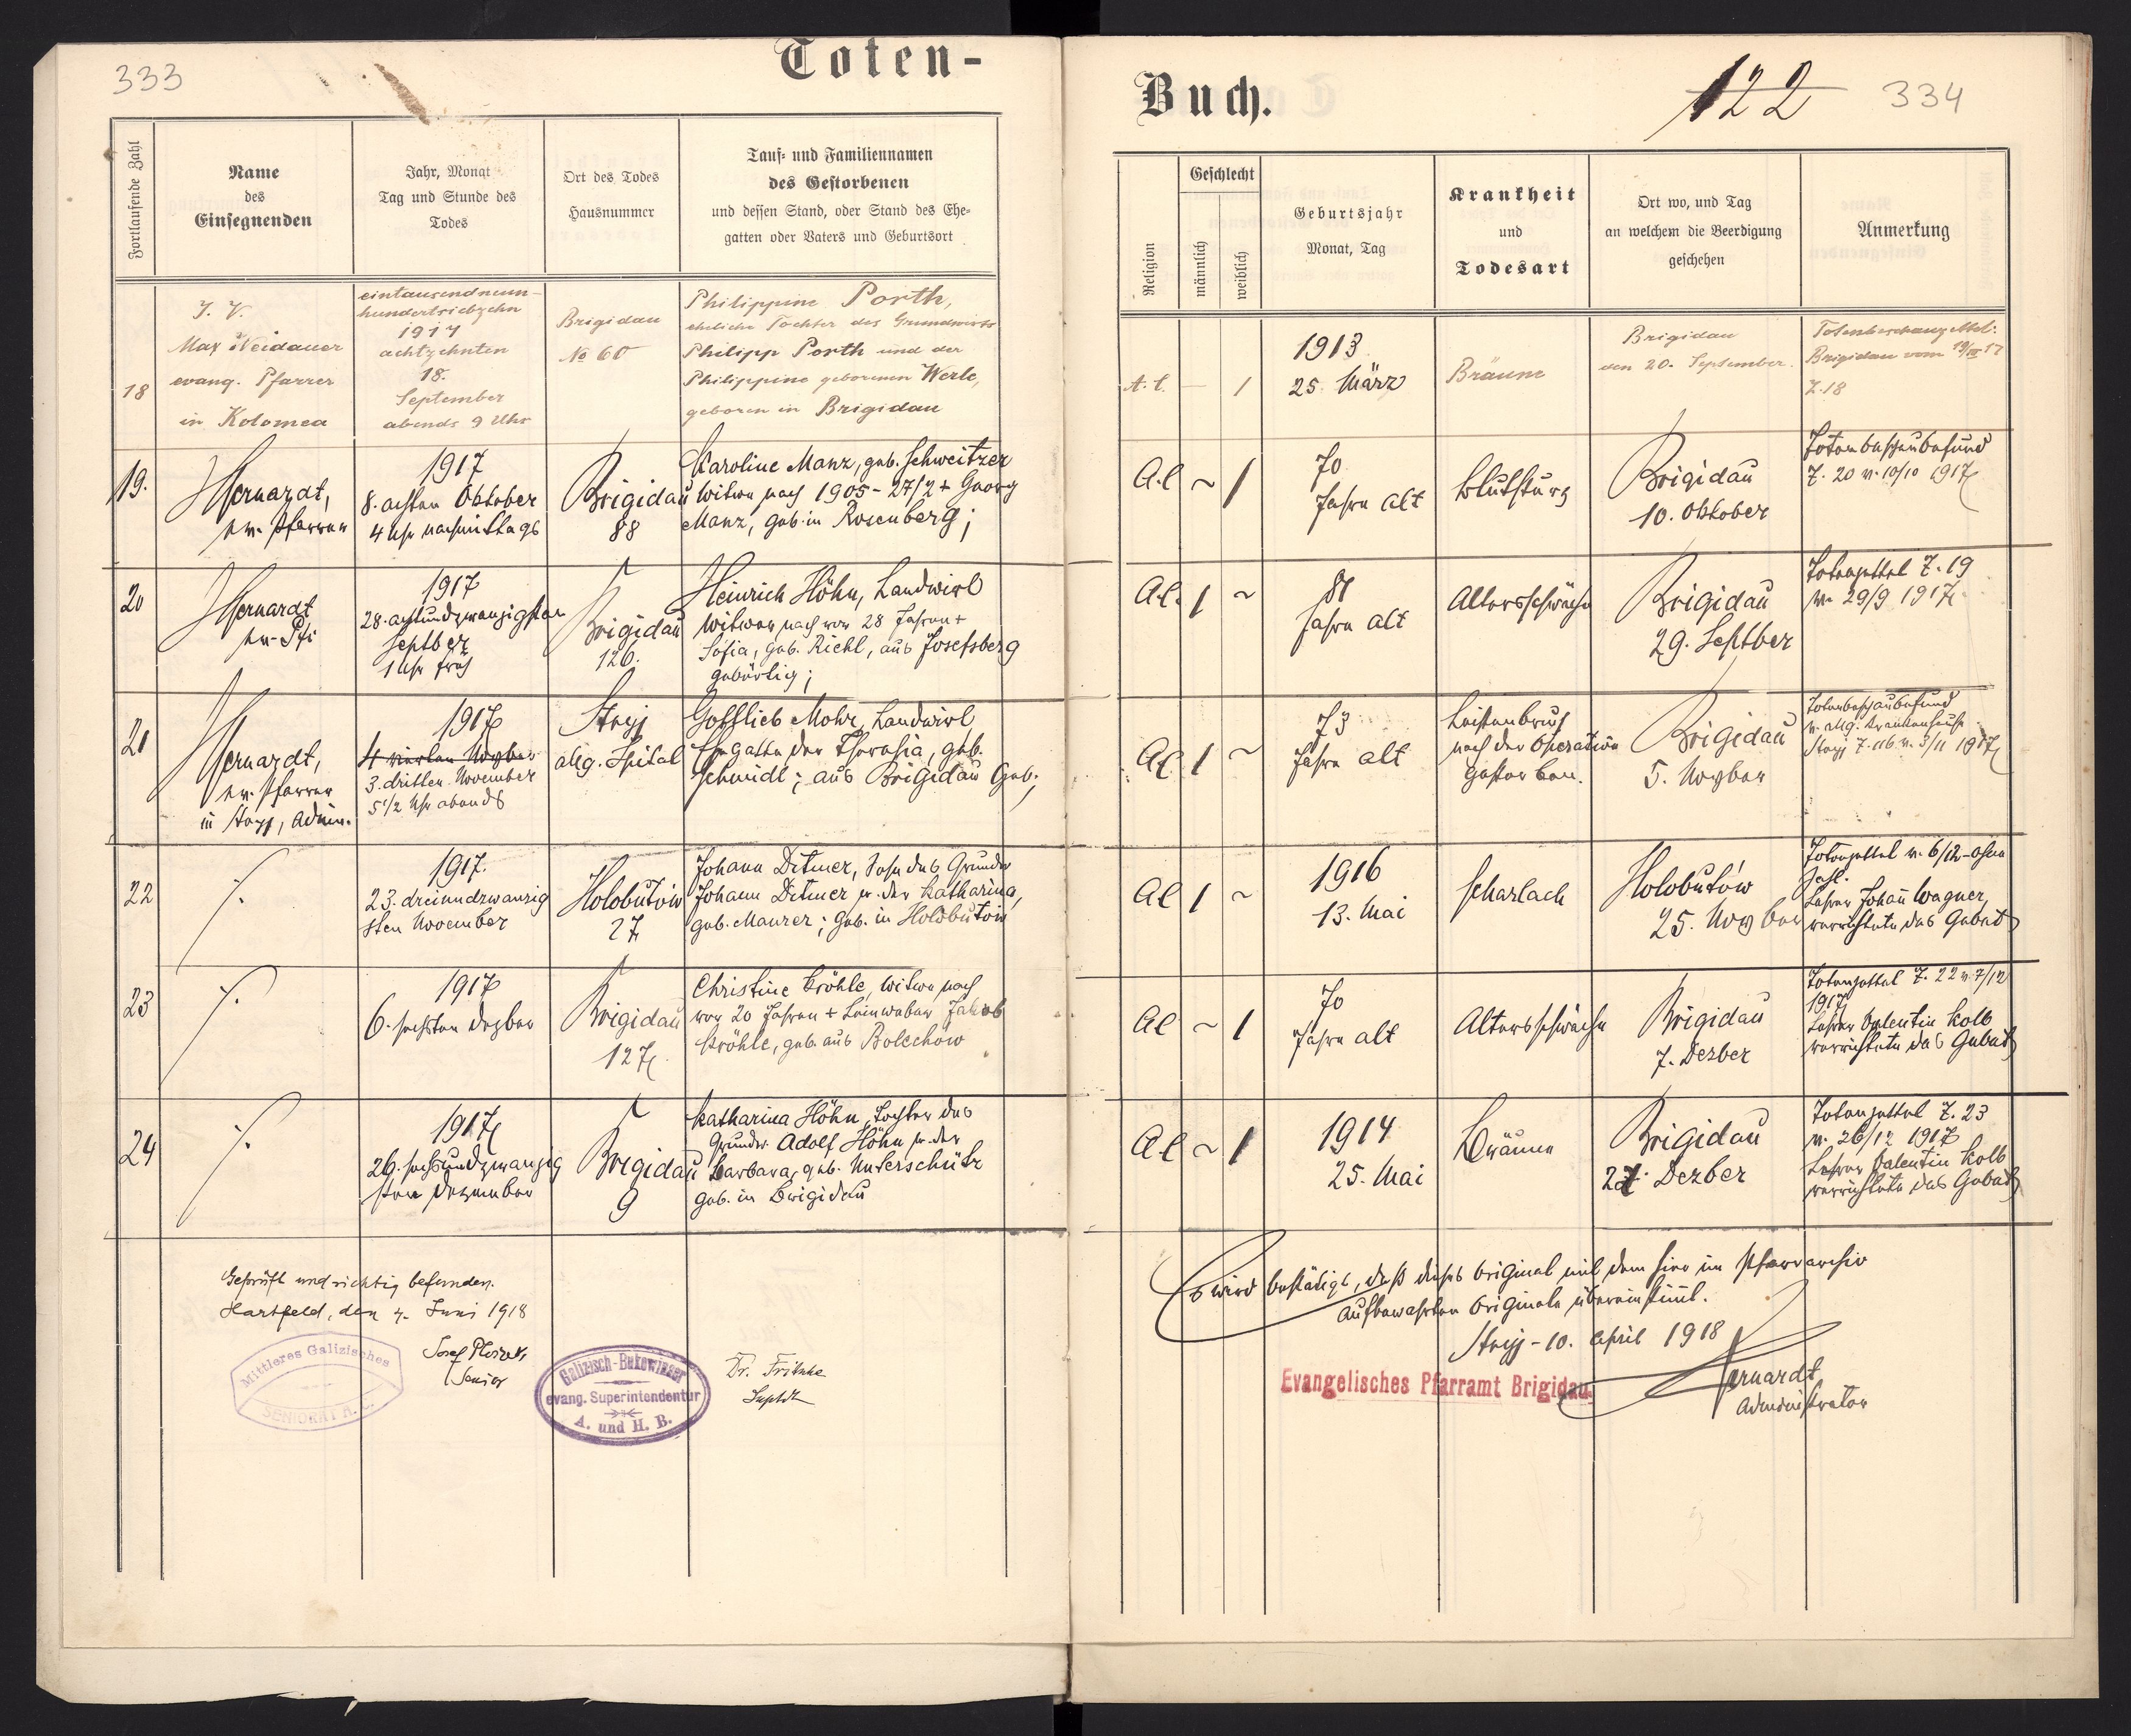 333
Toten-
Fortlaufende Zahl
Name
des
Einsegnenden
Jahr, Monat
Tag und Stunde des
Todes
Ort des Todes
Hausnummer
Tauf- und Familiennamen
des Gestorbenen
und dessen Stand, oder Stand des Ehe-
gatten oder Vaters und Geburtsort
18
I. V.
Max Weidauer
evang. Pfarrer
in Kolomea
eintausendneun-
hundertsiebzehn
1917
achtzehnten
18.
September
abends 9 Uhr
Brigidau
No 60
Philippine Porth,
eheliche Tochter des Grundwirts
Philipp Porth und der
Philippine geborenen Werle,
geboren in Brigidau
19.
ev. Pfarrer
1917
8. achten Oktober
4 Uhr nachmittags
Brigidau
88
Karoline Manz, geb. Schweitzer
Witwe nach 1905 - 27/2 + Georg
Manz, geb. in Rosenberg;
20
ev. Pfr
1917
28. achtundzwanzigsten
Septber
1 Uhr früh
Brigidau
126.
Heinrich Höhn, Landwirt
Witwer nach vor 28 Jahren +
Sofia, geb. Richl, aus Josefsberg
gebürtig;
21
ev. Pfarrer
in Stryj, Admin.
1917
4 vierten Novber
3. dritten November
5 1/2 Uhr abends
Stryj
allg. Spital
Gottlieb Mohr, Landwirt
Ehegatte der Theresia, geb.
Schmidt; aus Brigidau Geb.;
22
1917.
23. dreiundzwanzig
sten November
Holobutów
27
Johann Ditmer, Sohn des Grundw
Johann Ditmer u. der Katharina,
geb. Maurer; geb. in Holobutów
23
1917
6. sechsten Dezber
Brigidau
127.
Christine Kröhle, Witwe nach
vor 20 Jahren + Leinweber Jakob
Kröhle, geb. aus Bolechów
24
1917
26. sechsundzwanzig
sten Dezember
Brigidau
9
Katharina Höhn, Tochter des
Grundw. Adolf Höhn u. der
Barbara, geb. Unterschütz
geb. in Brigidau
Geprüft und richtig befunden.
Hartfeld, den 4. Juni 1918
Mittleres Galizisches
SENIORAT A. C.
Josef
Senior
Galizisch-Bukowinaer
evang. Superintendentur
A. und H. B.
Dr. Fritsche
Suptdt
Buch.
122
334
Religion
Geschlecht
männlich
weiblich
Geburtsjahr
Monat, Tag
Krankheit
und
Todesart
Ort wo, und Tag
an welchem die Beerdigung
geschehen
Anmerkung
A. C.
—
1
1913
25. März
Bräune
Brigidau
den 20. September.
Totenbeschauzettel:
Brigidau vom 19/IX 17
Z. 18
A.C
~
1
70
Jahre alt
Blutsturz
Brigidau
10. Oktober
Totenbeschaubefund
Z. 20 v. 10/10 1917
A.C.
1
~
81
Jahre alt
Altersschwäche
Brigidau
29. Septber
Totenzettel Z. 19
v. 29/9 1917.
AC
1
~
73
Jahre alt
Leistenbruch
nach der Operation
gestorben.
Brigidau
5. Novber
Totenbeschaubefund
v. allg. Krankenhause
Stryj Z. 116 v. 3/11 1917
AC
1
~
1916
13. Mai
Scharlach
Holobutów
25. Novber
Totenzettel v. 6/12 - ohne
Zahl.
Lehrer Johann Wagner,
verrichtete das Gebet
AC
~
1
70
Jahre alt
Altersschwäche
Brigidau
7. Dezber
Totenzettel Z. 22 v. 7/12
1917
Lehrer Valentin Kolb
verrichtete das Gebet
AC
~
1
1914
25. Mai
Bräune
Brigidau
27. Dezber
Totenzettel Z. 23
v. 26/12 1917
Lehrer Valentin Kolb
verrichtete das Gebet
Es wird bestätigt, daß dieses Original mit dem hier im Pfarrarchiv
aufbewahrten Originale übereinstimmt.
Stryj - 10. April 1918
Evangelisches Pfarramt Brigidau.
Administrator